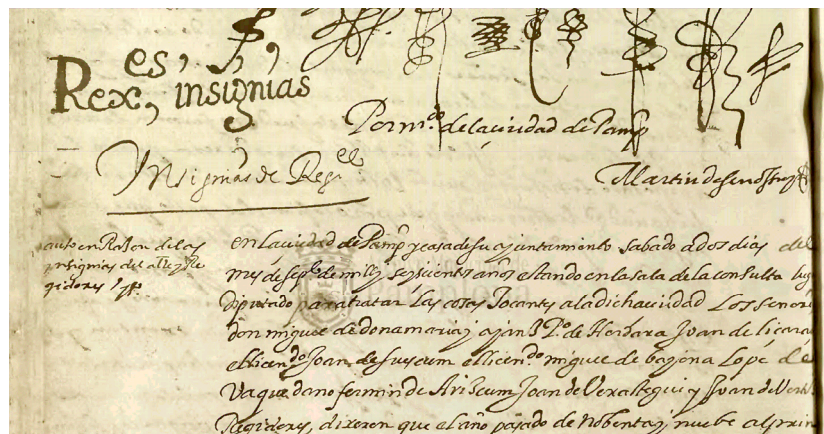 es,
Rex, insignias
Por m.do de la ciudad de Pamp
Martin de senosiay
Ynsignias de Regi.
auto en Razon de las
insignias del alld y Re
gidores
en la ciudad de Pamp y casa de su ajuntamiento sabado a dos dias del
mes de sep.e de mill y seyscientos años estando en la sala de la consulta lug
diputado para tratar las cosas tocantes a la dicha ciudad Los senor
don miguel de donamaria y P.o de Herdara Juan de liçara
el licen.do Joan de suescum el licen.do miguel de bayona Lope de
Vaquedano fermin de Arizcum Joan de Verastegui y Juan de
Regidores, dixeron que el año pasado de nobenta y nuebe al prin